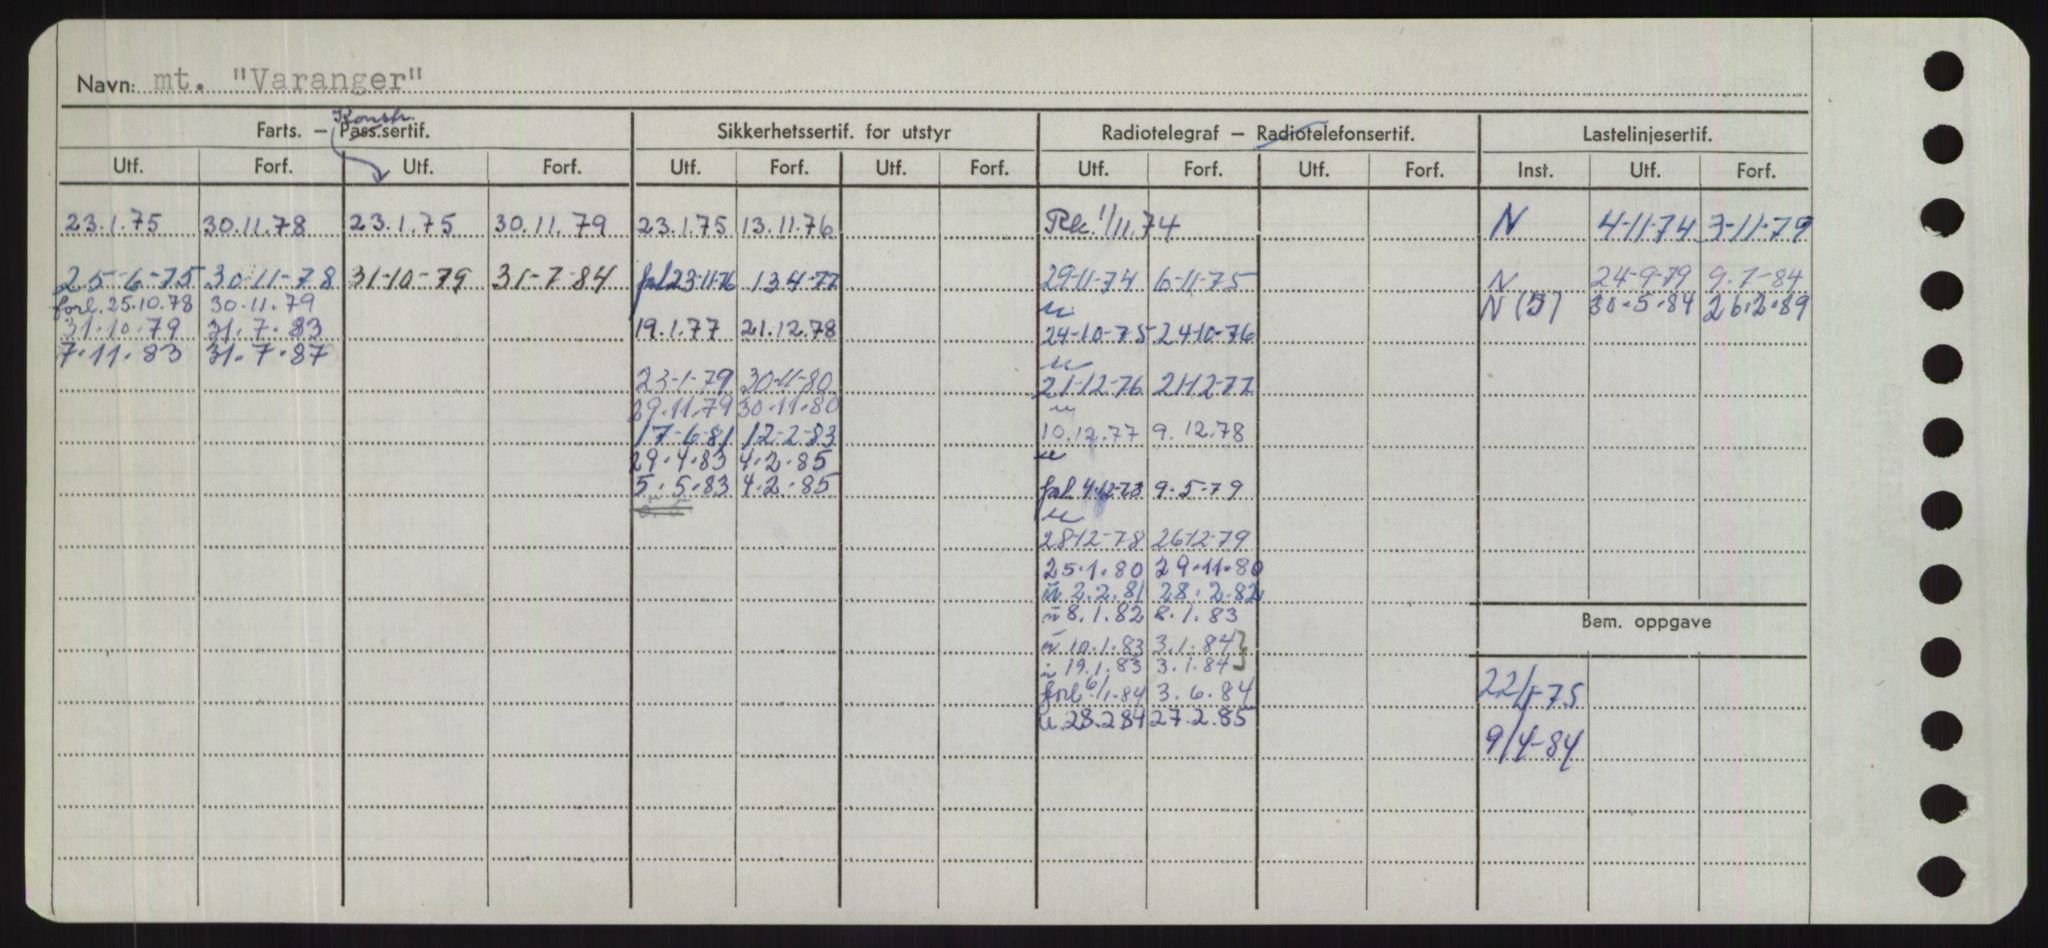 Navn: mt. "Varanger"
Konstr.
Farts. – Pass.sertif. Sikkerhetssertif. for utstyr Radiotelegraf – Radiotelefonsertif. Lastelinjesertif.
Utf. Forf. Utf. Forf. Utf. Forf. Utf. Forf. Utf. Forf. Utf. Forf. Inst. Utf. Forf.
23.1.75 30.11.78 23.1.75 30.11.79 23.1.75 13.11.76 1/11.74 N 4-11-74 3-11-79
25-6-75 30-11-78 31-10-79 31-7-84 23-11-76 13.4-77 29-11-74 6-11-75 N 24-9-79 9.7-84
forl. 25.10.78 30.11.79 N (5) 30.5.84 26.2.89
31.10.79 31.7.83 19.1.77 21.12.78 24-10-75 24-10-76
7.11.83 31.7.87
23-1-79 30-11-80 21-12-76 21-12-77
29.11.79 30.11.80
17-6-81 12-2-83 10.12.77 9.12.78
29.4.83 4.2.85
5.5.83 4.2.85 4.12-78 9.5-79
28-12-78 26-12-79
25.1.80 29.11.80
2.2.81 28.2.82
8.1.82 8.1.83
Bem. oppgave
10.1.83 3.1.84
19.1.83 3.1.84
forl 6/1.84 3.6.84 22/1-75
u. 28.2 84 27.2.85
9/4-84